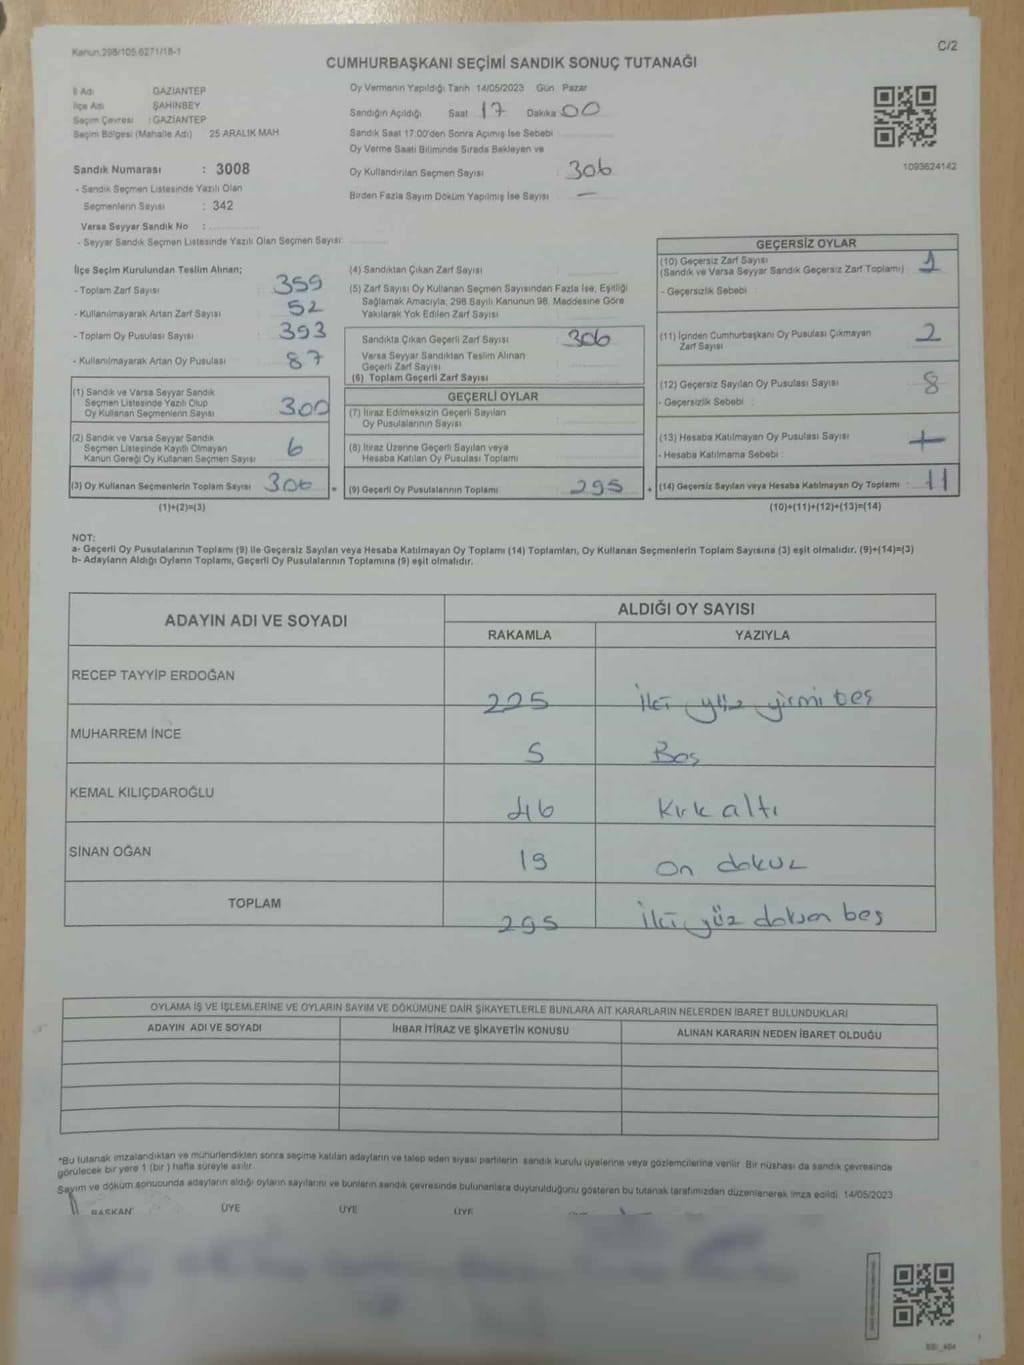 Kanun 298/105.6271/18-1
C/2
CUMHURBAŞKANI SEÇİMİ SANDIK SONUÇ TUTANAĞI
İl Adı GAZİANTEP
İlçe Adı ŞAHİNBEY
Seçim Çevresi : GAZİANTEP
Seçim Bölgesi (Mahalle Adı) 25 ARALIK MAH
Sandık Numarası : 3008
- Sandık Seçmen Listesinde Yazılı Olan
Seçmenlerin Sayısı : 342
Varsa Seyyar Sandık No :
- Seyyar Sandık Seçmen Listesinde Yazılı Olan Seçmen Sayısı
Oy Vermenin Yapıldığı Tarih 14/05/2023 Gün Pazar
Sandığın Açıldığı Saat 17 Dakika 00
Sandık Saat 17:00'den Sonra Açımış İse Sebebi
Oy Verme Saati Bitiminde Sırada Bekleyen ve
Oy Kullandırılan Seçmen Sayısı : 306
Birden Fazla Sayım Döküm Yapılmış İse Sayısı : —
1093624142
İlçe Seçim Kurulundan Teslim Alınan;
- Toplam Zarf Sayısı : 359
- Kullanılmayarak Artan Zarf Sayısı : 52
- Toplam Oy Pusulası Sayısı : 393
- Kullanılmayarak Artan Oy Pusulası : 87
(1) Sandık ve Varsa Seyyar Sandık
Seçmen Listesinde Yazılı Olup
Oy Kullanan Seçmenlerin Sayısı 300
(2) Sandık ve Varsa Seyyar Sandık
Seçmen Listesinde Kayıtlı Olmayan
Kanun Gereği Oy Kullanan Seçmen Sayısı 6
(3) Oy Kullanan Seçmenlerin Toplam Sayısı 306
(1)+(2)=(3)
(4) Sandıktan Çıkan Zarf Sayısı
(5) Zarf Sayısı Oy Kullanan Seçmen Sayısından Fazla İse, Eşitliği
Sağlamak Amacıyla, 298 Sayılı Kanunun 98. Maddesine Göre
Yakılarak Yok Edilen Zarf Sayısı
Sandıkta Çıkan Geçerli Zarf Sayısı 306
Varsa Seyyar Sandıktan Teslim Alınan
Geçerli Zarf Sayısı
(6) Toplam Geçerli Zarf Sayısı
GEÇERLİ OYLAR
(7) İtiraz Edilmeksizin Geçerli Sayılan
Oy Pusulalarının Sayısı
(8) İtiraz Üzerine Geçerli Sayılan veya
Hesaba Katılan Oy Pusulası Toplamı
= (9) Geçerli Oy Pusulalarının Toplamı 295
GEÇERSİZ OYLAR
(10) Geçersiz Zarf Sayısı
(Sandık ve Varsa Seyyar Sandık Geçersiz Zarf Toplamı) 1
- Geçersizlik Sebebi
(11) İçinden Cumhurbaşkanı Oy Pusulası Çıkmayan
Zarf Sayısı 2
(12) Geçersiz Sayılan Oy Pusulası Sayısı 8
- Geçersizlik Sebebi
(13) Hesaba Katılmayan Oy Pusulası Sayısı
- Hesaba Katılmama Sebebi
+ (14) Geçersiz Sayılan veya Hesaba Katılmayan Oy Toplamı : 11
(10)+(11)+(12)+(13)=(14)
NOT:
a- Geçerli Oy Pusulalarının Toplamı (9) ile Geçersiz Sayılan veya Hesaba Katılmayan Oy Toplamı (14) Toplamları, Oy Kullanan Seçmenlerin Toplam Sayısına (3) eşit olmalıdır. (9)+(14)=(3)
b- Adayların Aldığı Oyların Toplamı, Geçerli Oy Pusulalarının Toplamına (9) eşit olmalıdır.
ADAYIN ADI VE SOYADI ALDIĞI OY SAYISI
RAKAMLA YAZIYLA
RECEP TAYYİP ERDOĞAN 225 İki yüz yirmi beş
MUHARREM İNCE 5 Beş
KEMAL KILIÇDAROĞLU 46 Kırk altı
SİNAN OĞAN 19 On dokuz
TOPLAM 295 İki yüz doksan beş
OYLAMA İŞ VE İŞLEMLERİNE VE OYLARIN SAYIM VE DÖKÜMÜNE DAİR ŞİKAYETLERLE BUNLARA AİT KARARLARIN NELERDEN İBARET BULUNDUKLARI
ADAYIN ADI VE SOYADI İHBAR İTİRAZ VE ŞİKAYETİN KONUSU ALINAN KARARIN NEDEN İBARET OLDUĞU
*Bu tutanak imzalandıktan ve mühürlendikten sonra seçime katılan adayların ve talep eden siyasi partilerin sandık kurulu üyelerine veya gözlemcilerine verilir. Bir nüshası da sandık çevresinde
görülecek bir yere 1 (bir ) hafta süreyle asılır.
Sayım ve döküm sonucunda adayların aldığı oyların sayılarını ve bunların sandık çevresinde bulunanlara duyurulduğunu gösteren bu tutanak tarafımızdan düzenlenerek imza edildi 14/05/2023
BAŞKAN ÜYE ÜYE ÜYE